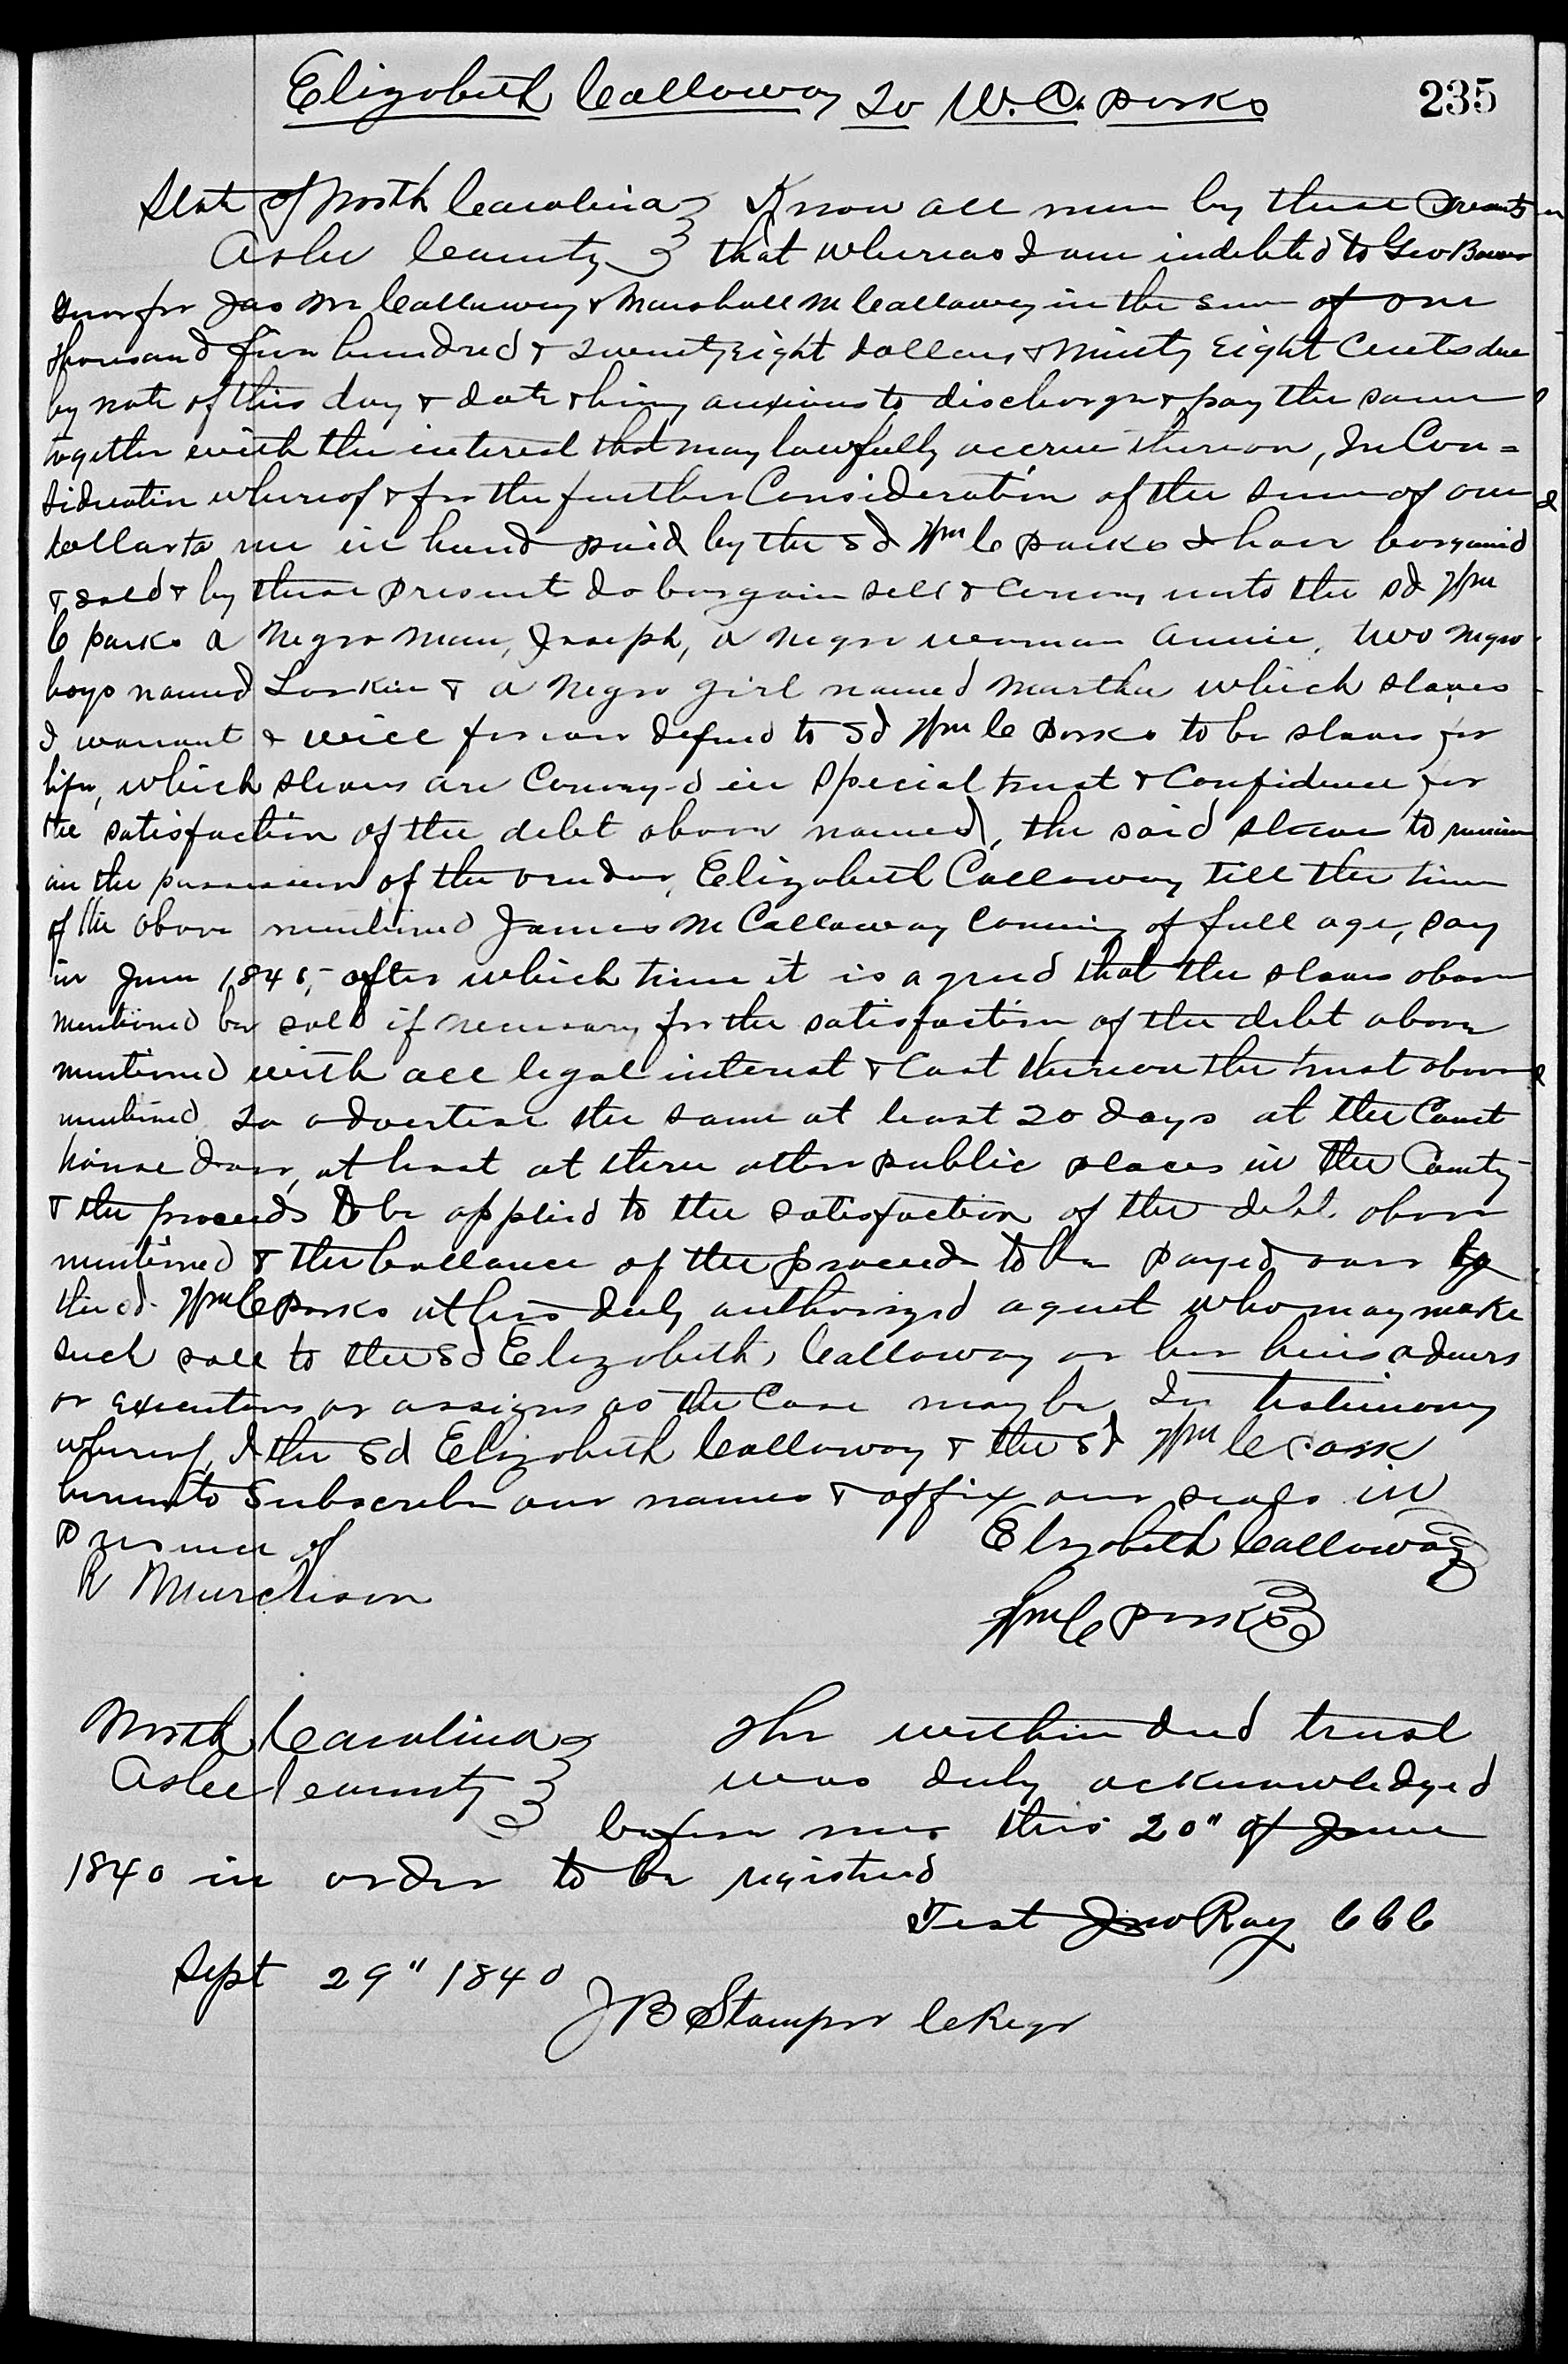 Elizabeth Calloway To W. C. Parks
235
State of North Carolina } Know all men by these Presents
Ashe County } that whereas I am indebted to Geo Bower
Guar for Jas M Calloway & Marshall M Calloway in the sum of one
thousand five hundred & twenty Eight dollars & Ninety Eight Cents due
by note of this day & date & being anxious to discharge & pay the same
together with the interest that may lawfully accrue thereon, In Con=
sideration whereof & for the further Consideration of the sum of one
dollar to me in hand paid by the sd Wm C Parks I have bargained
& sold & by these Present do bargain sell & Convey unto the sd Wm
C Parks a Negro man, Joseph, a Negro woman Annie, two Negro
boys named Larkin & a Negro girl named Martha which slaves
I warrant & will forever defend to sd Wm C Parks to be slaves for
life, which slaves are Convey-d in Special trust & Confidence for
the satisfaction of the debt above named, the said slaves to remain
in the possession of the vendor, Elizabeth Calloway till the time
of the above mentioned James M Calloway Coming of full age, say
in June 1846, after which time it is agreed that the slaves above
mentioned be sold if necessary for the satisfaction of the debt above
mentioned with all legal interest & Cost thereon the trust above
mentioned to advertise the same at least 20 days at the Court
house door, at least at three other public places in the County
& the proceeds to be applied to the satisfaction of the debt above
mentioned & the ballance of the proceeds to be payed over by
the sd Wm C Parks or his duly authorized agent who may make
such sale to the sd Elizabeth Calloway or her heirs admrs
or executors or assigns as the Case may be In testimony
whereof, I the sd Elizabeth Calloway & the sd Wm C Park
hereunto Subscribe our names & affix our seals in
Presence of
Elizabeth Calloway
R Murchison
Wm C Parks
North Carolina } The within deed trust
Ashe County } was duly acknowledged
before me this 20" of June
1840 in order to be registered
Test Jno Ray C C C
Sept 29" 1840
J B Stamper C Regr